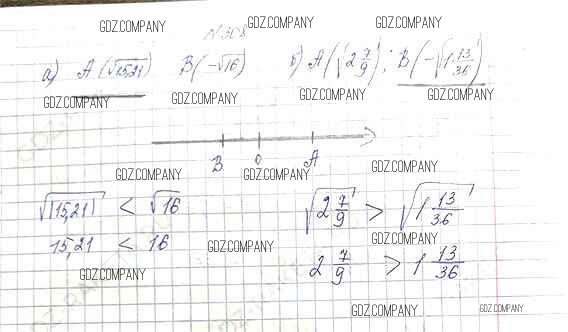 GDZ.COMPANY GDZ.COMPANY GDZ.COMPANY
№308
а) A(√15,21) B(-√16) б) A(√2 7/9); B(-√1 13/36)
GDZ.COMPANY GDZ.COMPANY GDZ.COMPANY
B 0 A
GDZ.COMPANY GDZ.COMPANY GDZ.COMPANY
√|15,21| < √16 √2 7/9 > √1 13/36
GDZ.COMPANY GDZ.COMPANY
15,21 < 16 2 7/9 > 1 13/36
GDZ.COMPANY
GDZ.COMPANY GDZ.COMPANY